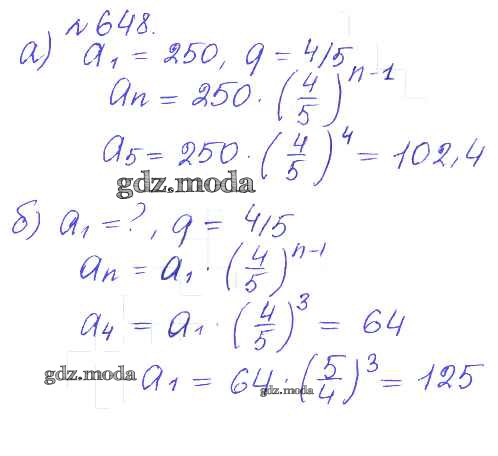 № 648.
а) a₁ = 250, q = 4/5
aₙ = 250 · (4/5)ⁿ⁻¹
a₅ = 250 · (4/5)⁴ = 102,4
gdz.moda
б) a₁ = ?, q = 4/5
aₙ = a₁ · (4/5)ⁿ⁻¹
a₄ = a₁ · (4/5)³ = 64
gdz.moda a₁ = 64 · (5/4)³ = 125
gdz.moda